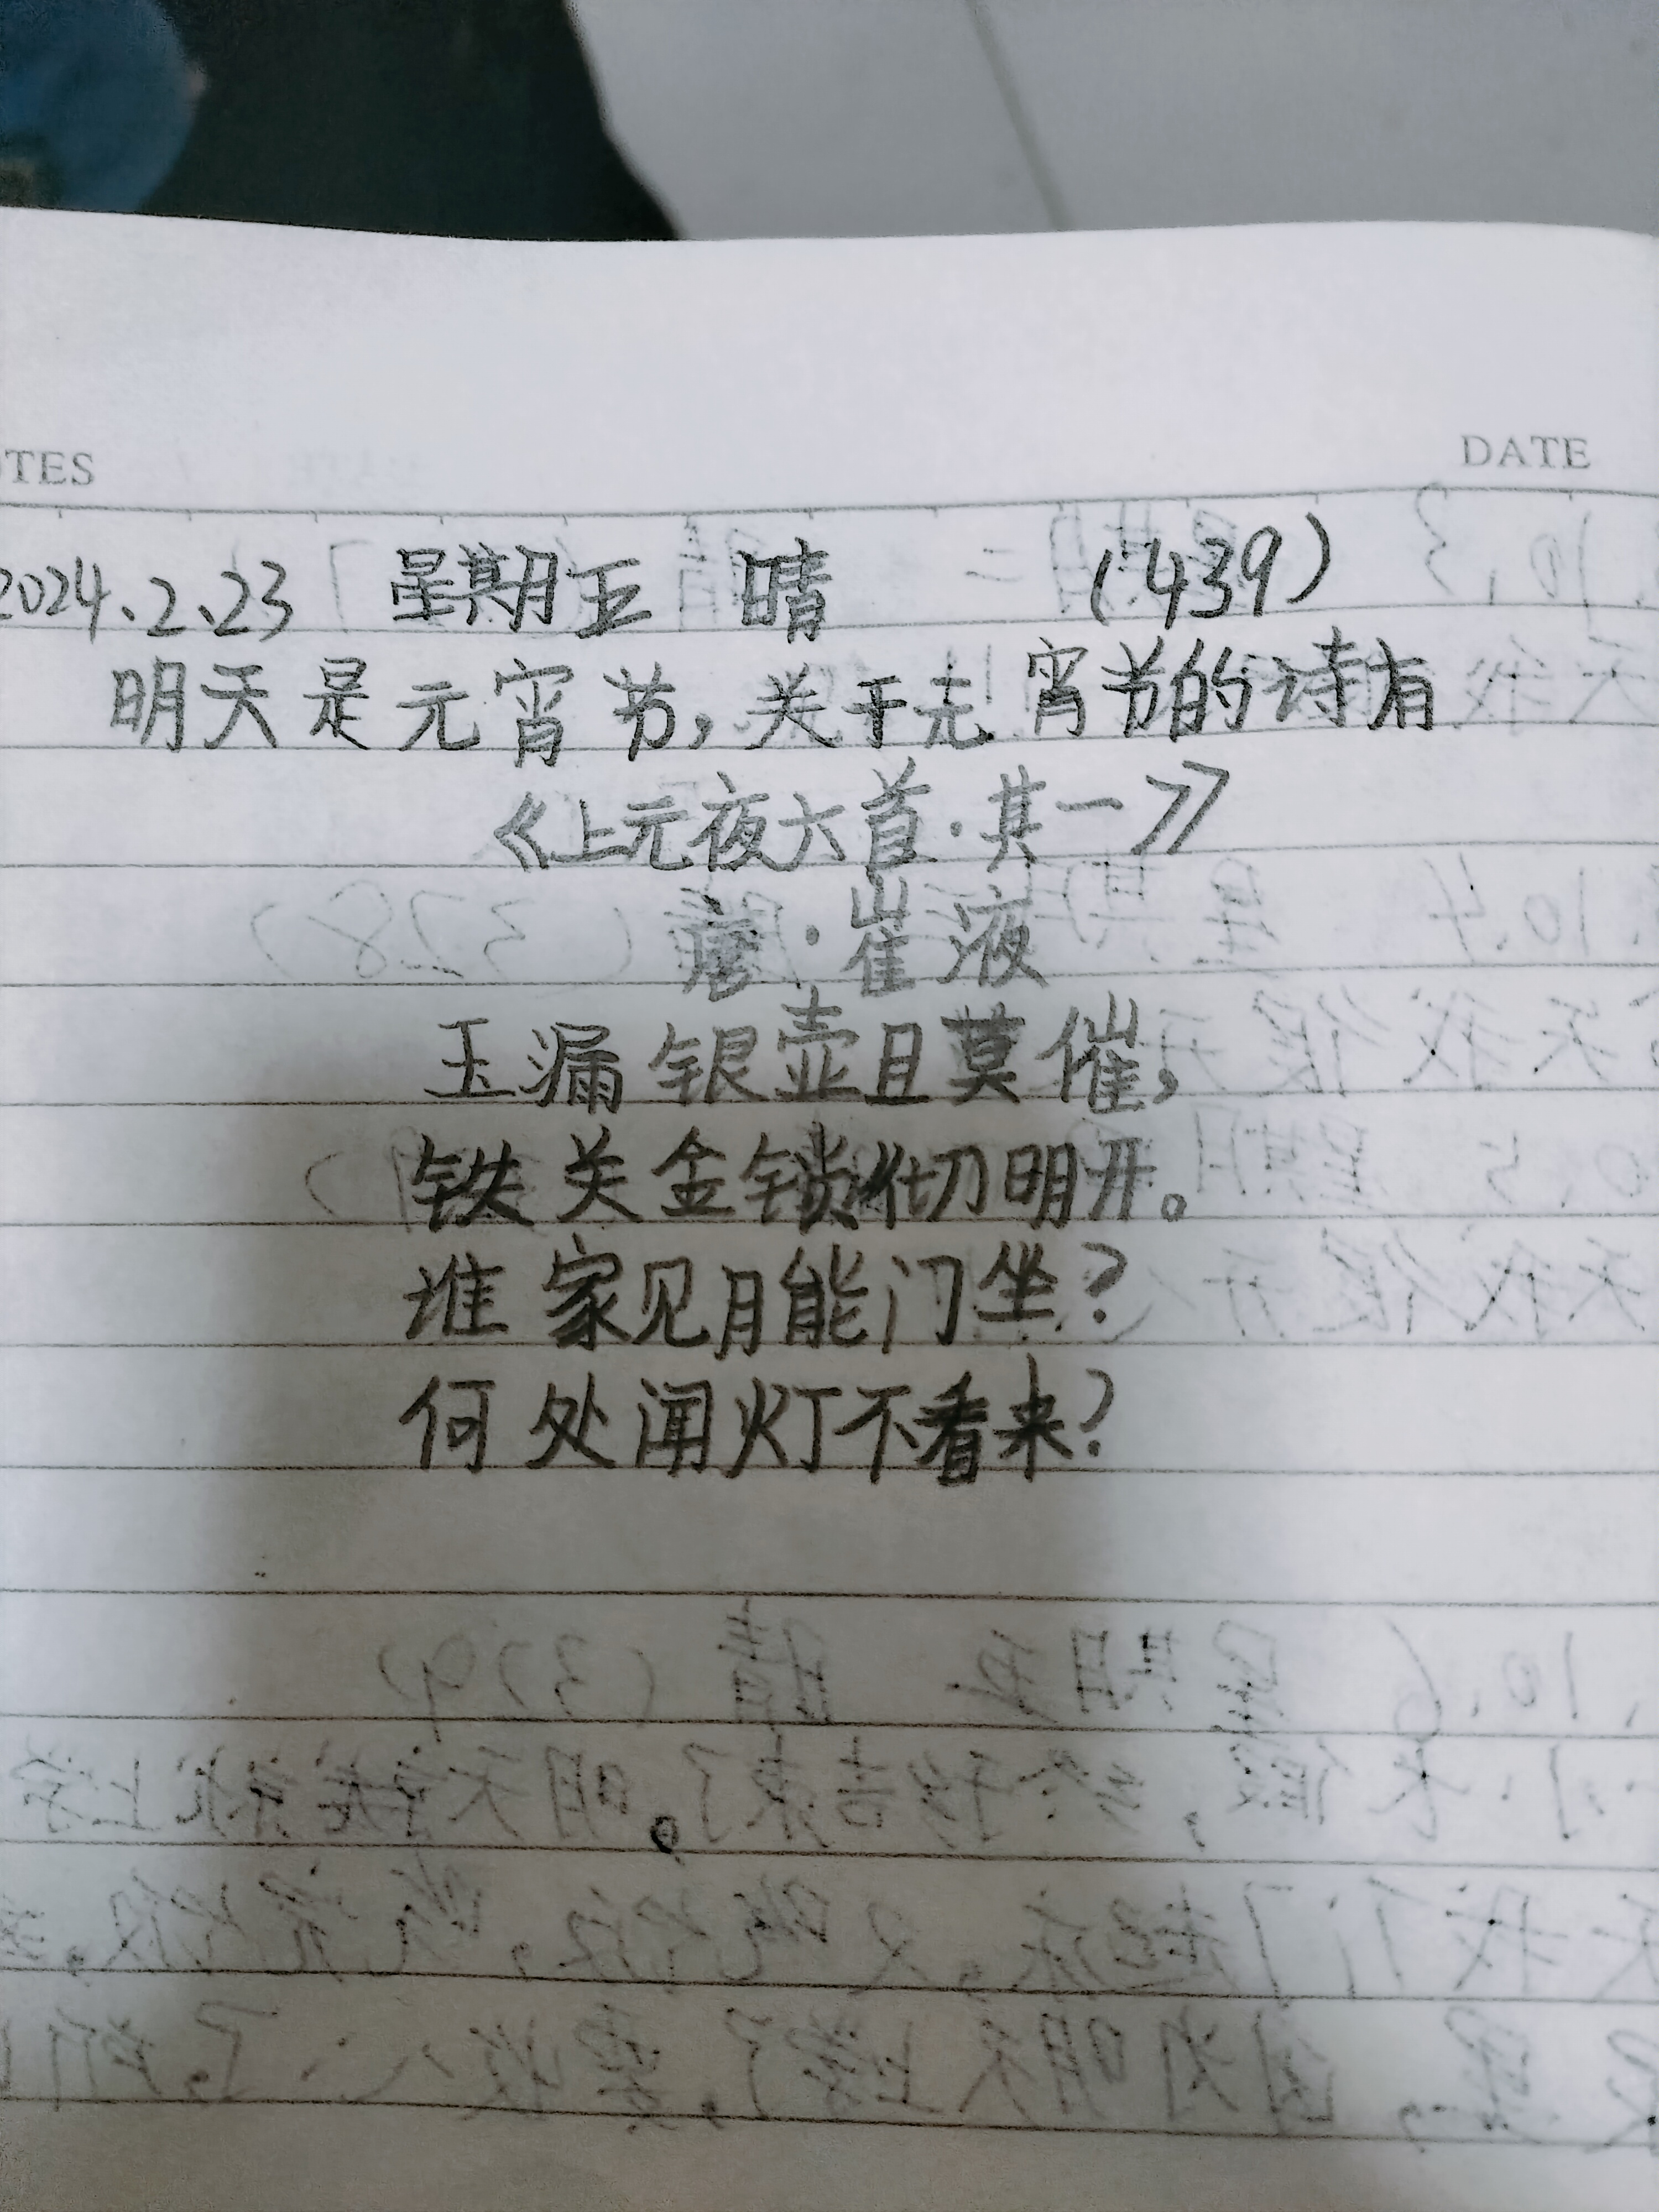 OTES DATE
2024.2.23 星期五 晴 (439)
明天是元宵节,关于元宵节的诗有
《上元夜六首·其一》
唐·崔液
玉漏银壶且莫催,
铁关金锁彻明开。
谁家见月能门坐?
何处闻灯不看来?